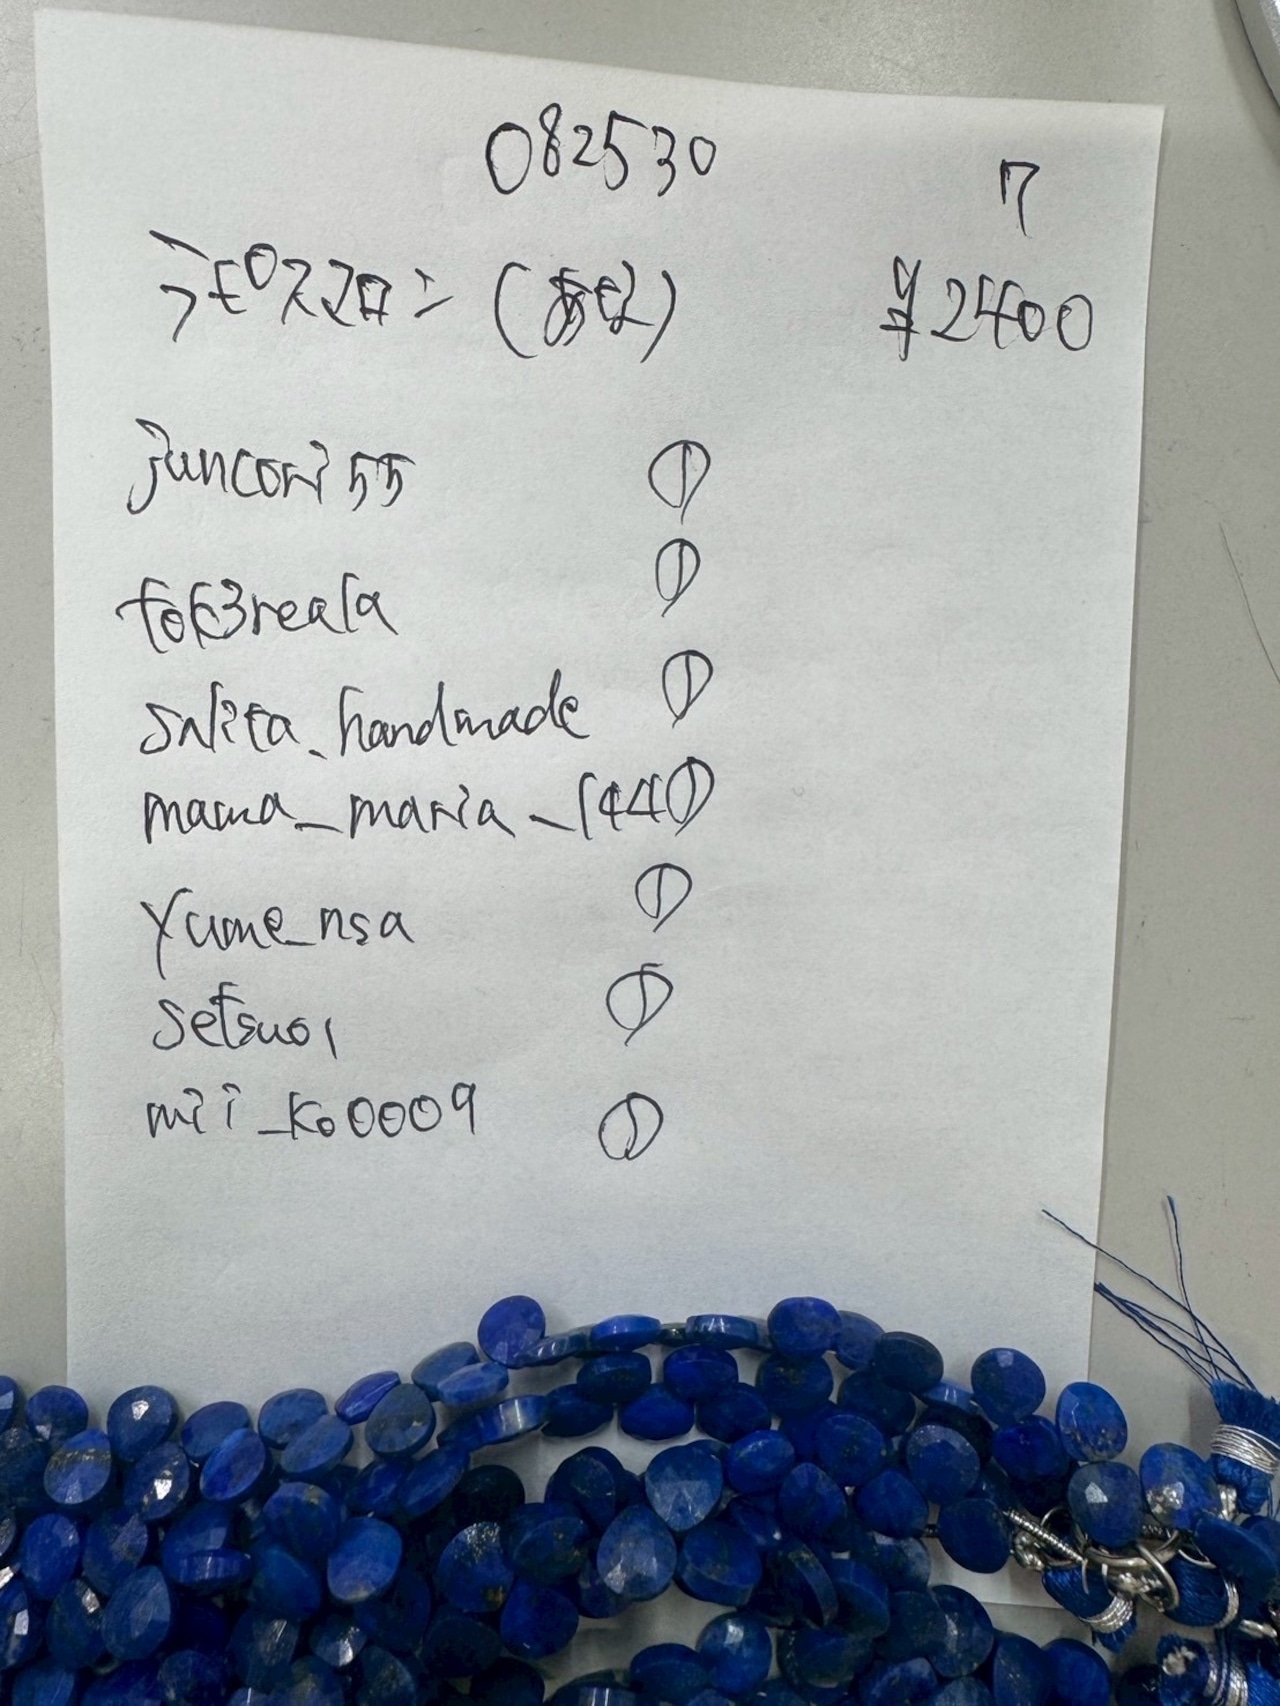 082530
7
ラピスマロン (あな) ¥2400
juncori55 ①
tok3reala ①
snita_handmade ①
mama_maria_144 ①
yume_nsa ①
setsuo1 ①
mii_ko0009 ①